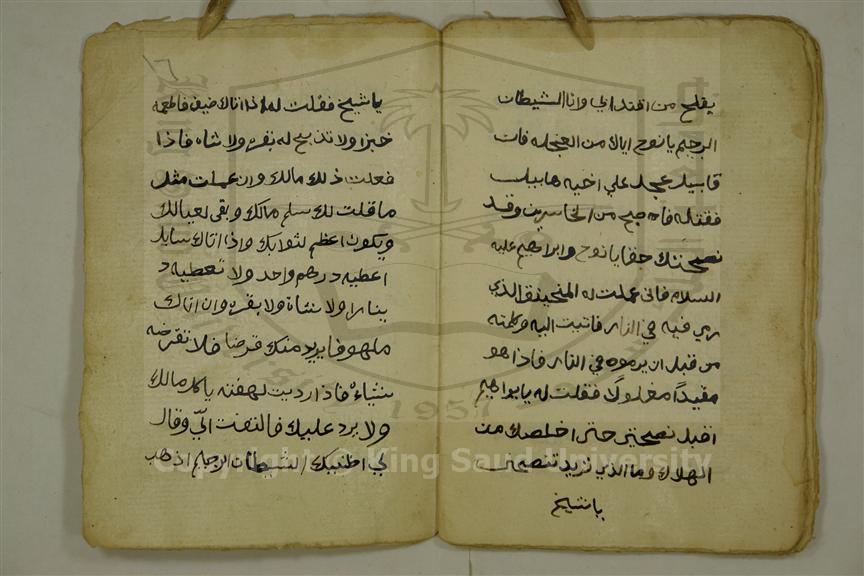 يفلح من اقتدا بي وانا الشيطان
الرجيم يا نوح اياك من العجله فان
قابيل عجل علي اخيه هابيل
فقتله فاصبح من الخاسرين وقد
نصحتك حقا يا نوح وابراهيم عليه
السلام فاني عملت له المنجنيق الذي
رمي فيه في النار فاتيت اليه وكلمته
من قبل ان يرموه في النار فاذا هو
مقيدًا مغلولًا فقلت له يا ابراهيم
اقبل نصحيتي حتى اخلصك من
الهلاك وما الذي تريد تنصحني
يا شيخ
١٦
يا شيخ فقلت له اذا اتاك ضيف فاطعمه
خبزا ولا تذبح له بقره ولا شاه فاذا
فعلت ذلك مالك وان عملت مثل
ما قلت لك سلم مالك وبقى لعيالك
ويكون اعظم لثوابك واذا اتاك سايل
اعطيه درهم واحد ولا تعطيه د
ينارا ولا شاة ولا بقره وان اتاك
ملهوفا يريد منك قرضا فلا تقرضه
شياء فاذا رديت لهفته ياكل مالك
ولا يرد عليك فالتفت اليّ وقال
لي اظنك الشيطان الرجيم اذهب
Copyright © King Saud University
1957